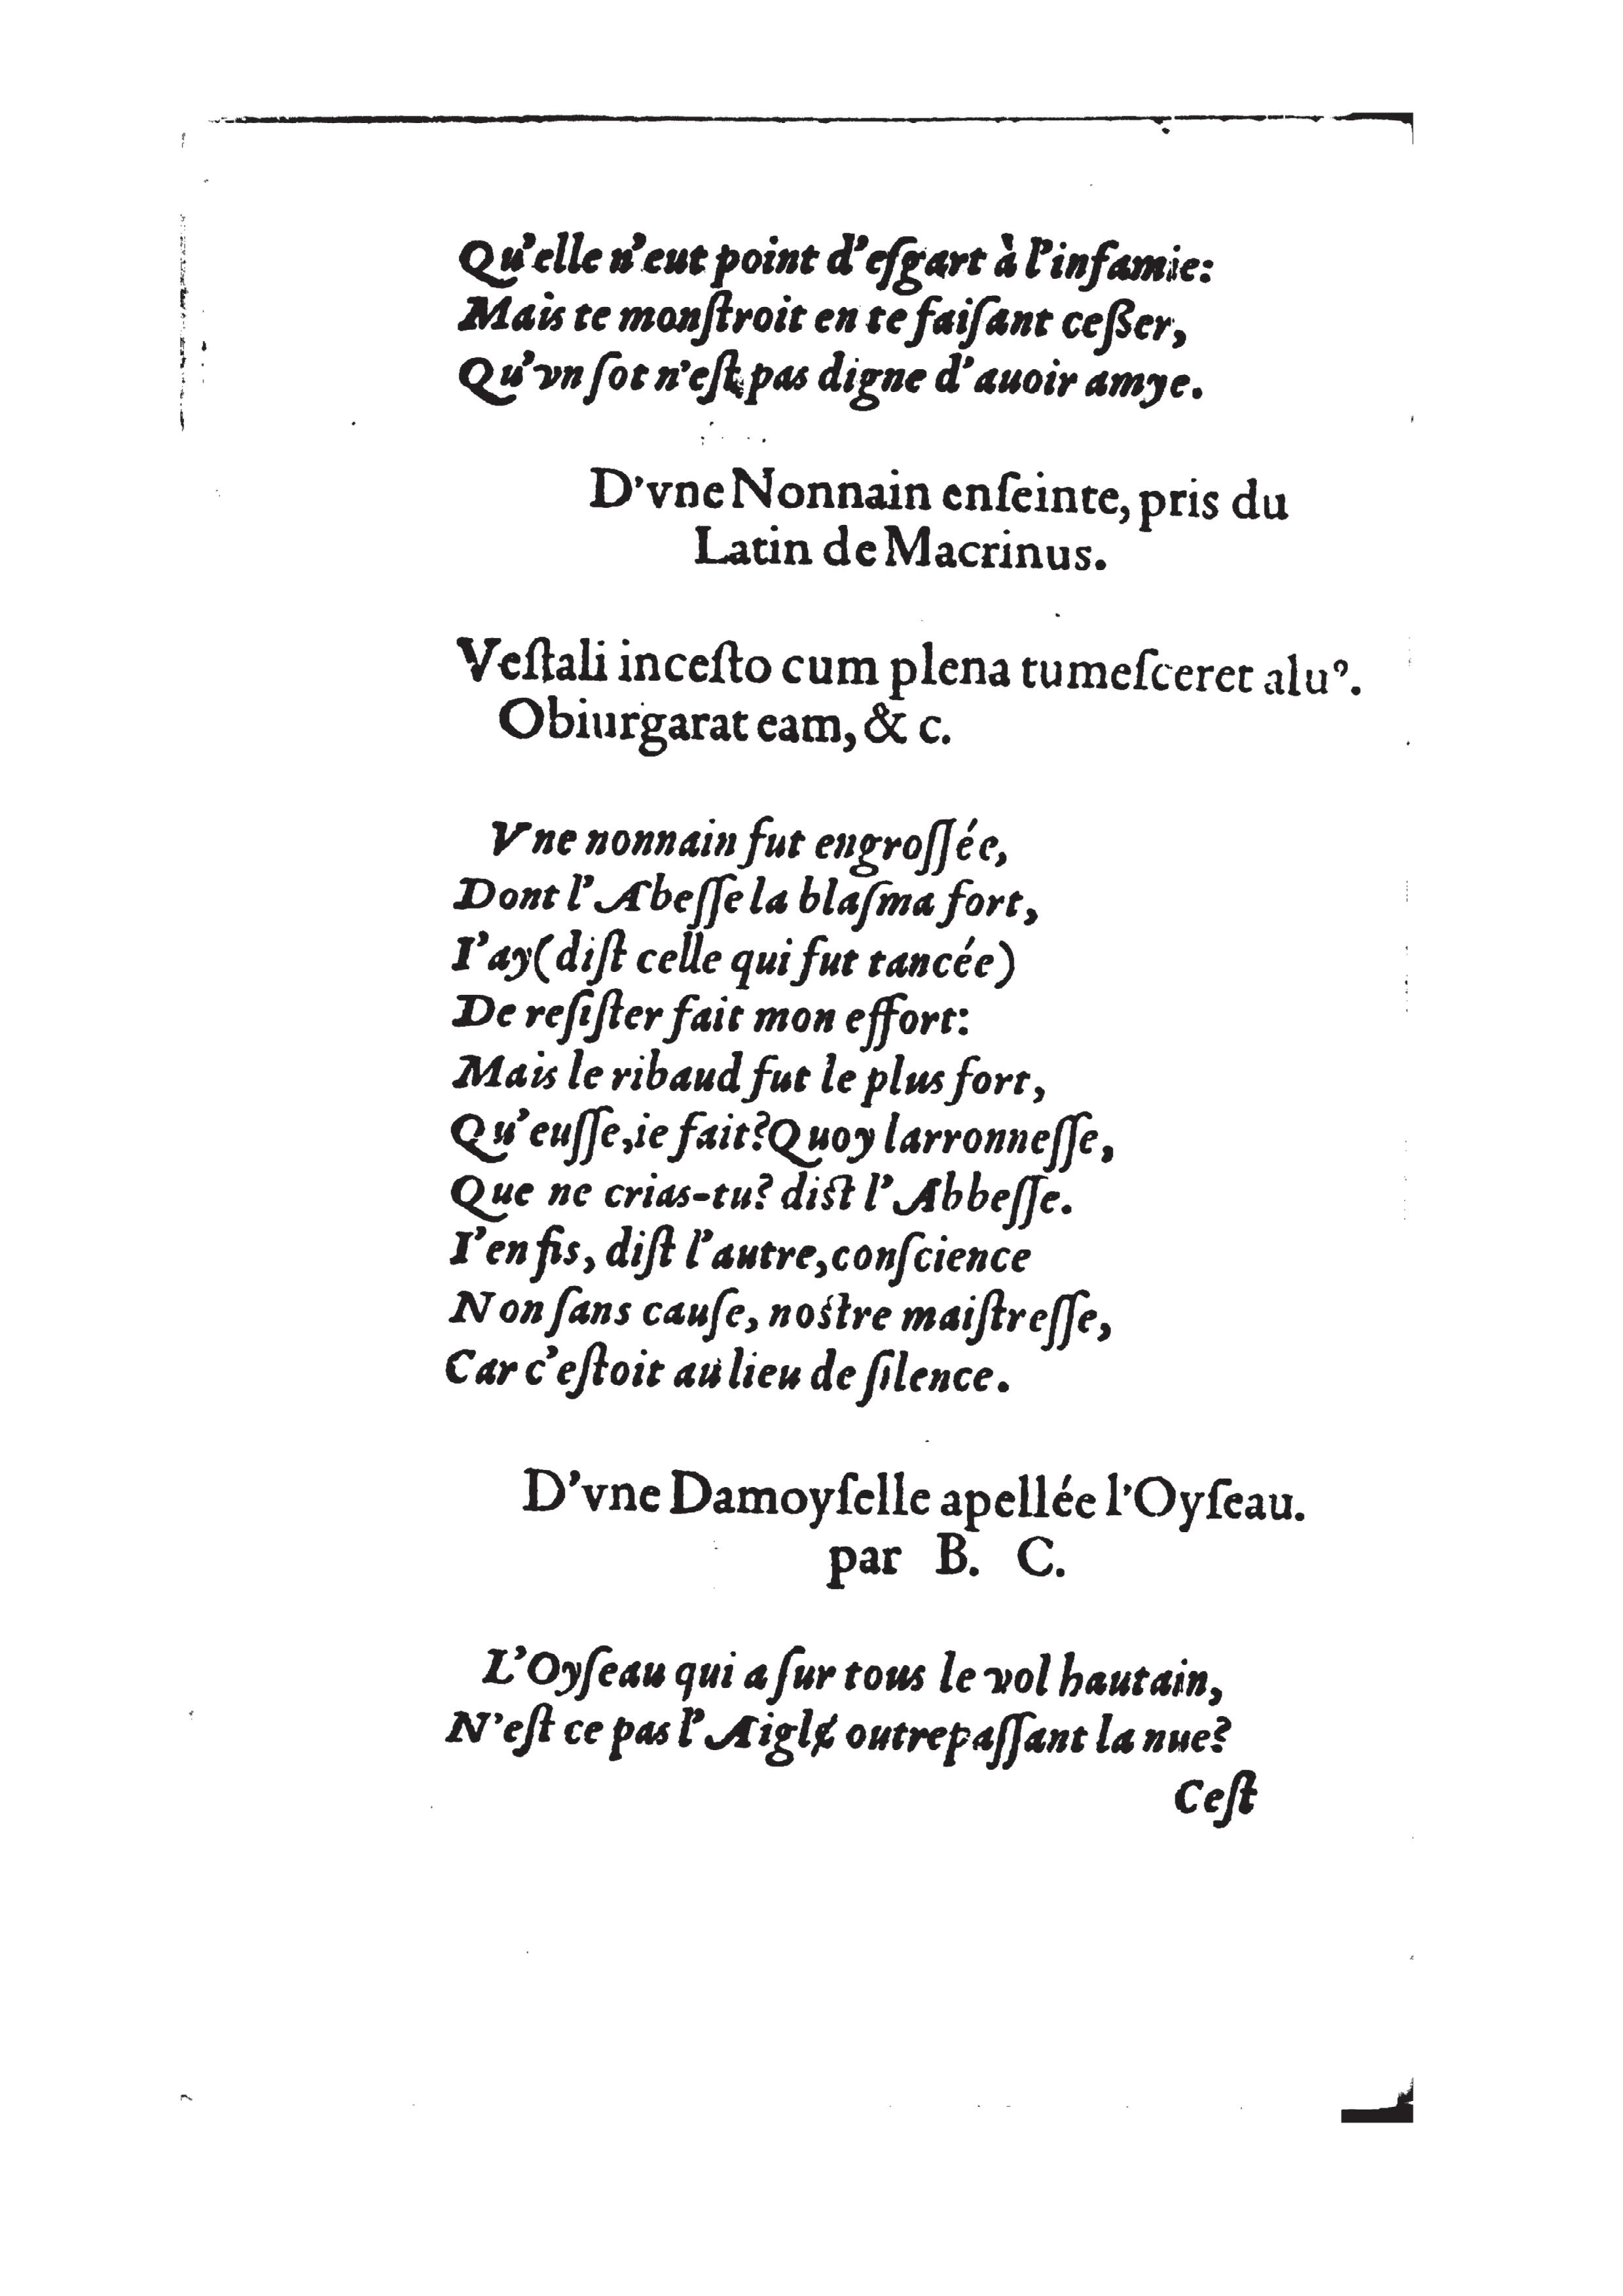 Qu'elle n'eut point d'eſgart à l'infamie:
Mais te monſtroit en te faiſant ceßer,
Qu'vn ſot n'eſt pas digne d'auoir amye.
D'vne Nonnain enſeinte, pris du
Latin de Macrinus.
Veſtali inceſto cum plena tumeſceret aluꝰ.
Obiurgarat eam, & c.
Vne nonnain fut engroſſée,
Dont l'Abeſſe la blaſma fort,
I'ay (diſt celle qui fut tancée)
De reſiſter fait mon effort:
Mais le ribaud fut le plus fort,
Qu'euſſe,ie fait? Quoy larronneſſe,
Que ne crias-tu? diſt l'Abbeſſe.
I'en fis, diſt l'autre, conſcience
Non ſans cauſe, noſtre maiſtreſſe,
Car c'eſtoit au lieu de ſilence.
D'vne Damoyſelle apellée l'Oyſeau.
par B. C.
L'Oyſeau qui a ſur tous le vol hautain,
N'eſt ce pas l'Aiglɇ outrepaſſant la nue?
Ceſt